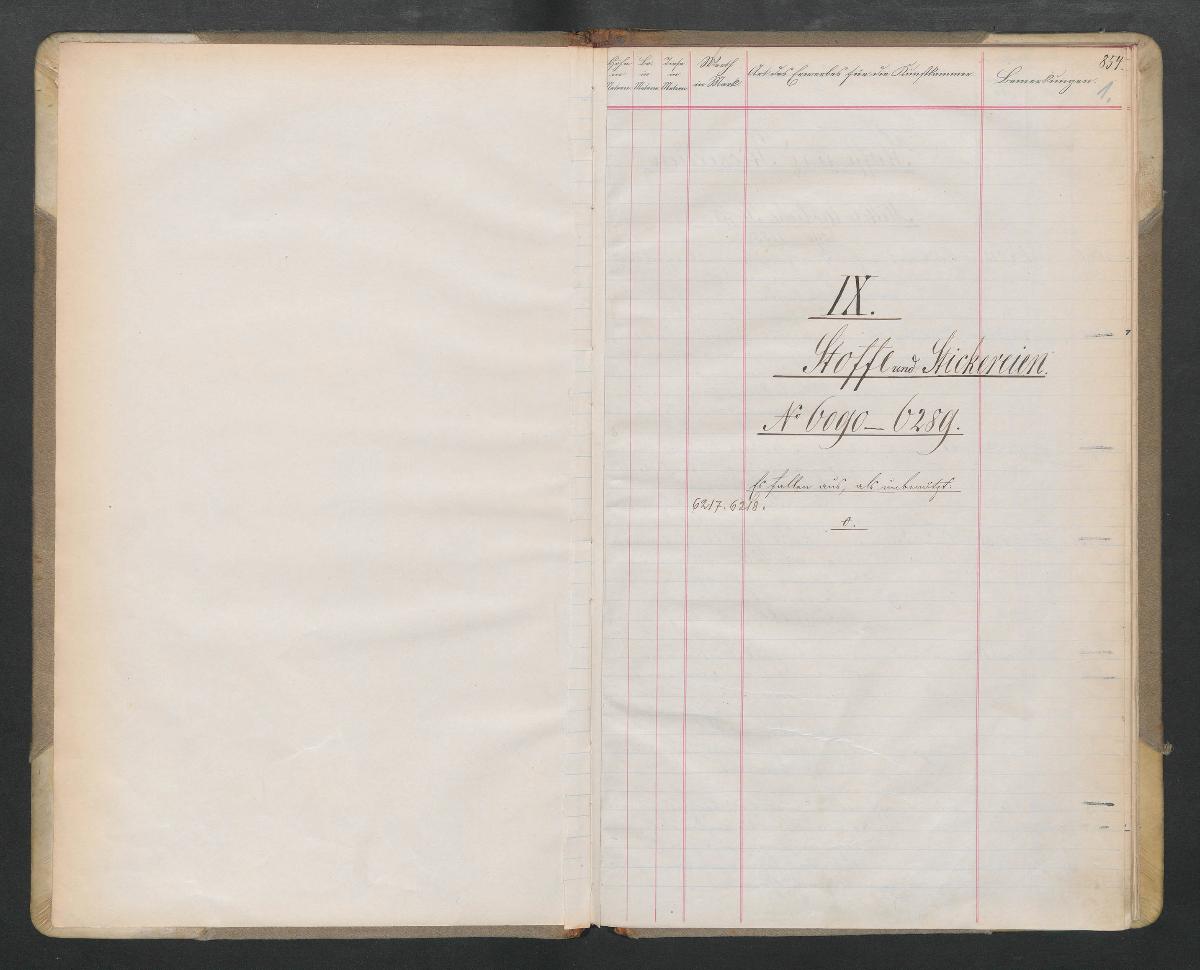 Höhe in Metern
Br. in Metern
Tiefe in Metern
Werth in Mark
Art des Erwerbes für die Kunstkammer
Bemerkungen.
854.
1.
IX.
Stoffe und Stickereien.
No 6090–6289.
Es fallen aus, als unbenützt:
6217. 6218.